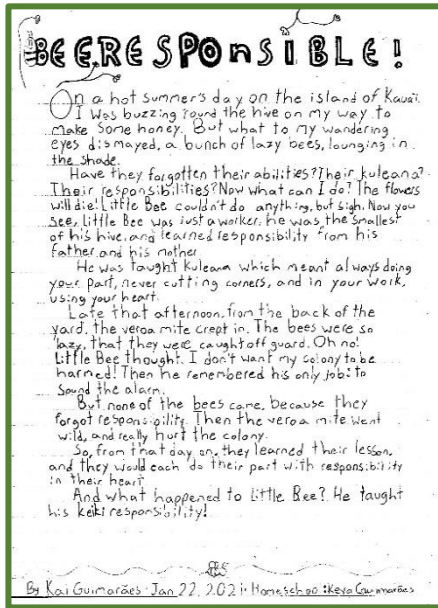 BEERESPOnSIBLE!
On a hot summer's day on the island of Kauai.
I was buzzing round the hive on my way to
make some honey. But what to my wandering
eyes dismayed, a bunch of lazy bees, lounging in
the shade.
Have they forgotten their abilities? Their kuleana?
Their responsibilities? Now what can I do? The flowers
will die! Little Bee couldn't do anything, but sigh. Now you
see, Little Bee was just a worker. he was the smallest
of his hive, and learned responsibility from his
father and his mother
He was taught kuleana which meant always doing
your part, never cutting corners, and in your work,
using your heart.
Late that afternoon, from the back of the
yard, the veroa mite crept in. The bees were so
lazy, that they were caught off guard. Oh no!
Little Bee thought. I don't want my colony to be
harmed! Then he remembered his only job: to
sound the alarm.
But none of the bees came, because they
forgot responsibility. Then the veroa mite went
wild, and really hurt the colony.
So, from that day on, they learned their lesson,
and they would each do their part with responsibility
in their heart
And what happened to Little Bee? He taught
his keiki responsibility!
By Kai Guimarães · Jan 22, 2021 · Homeschool: Keya Guimarães